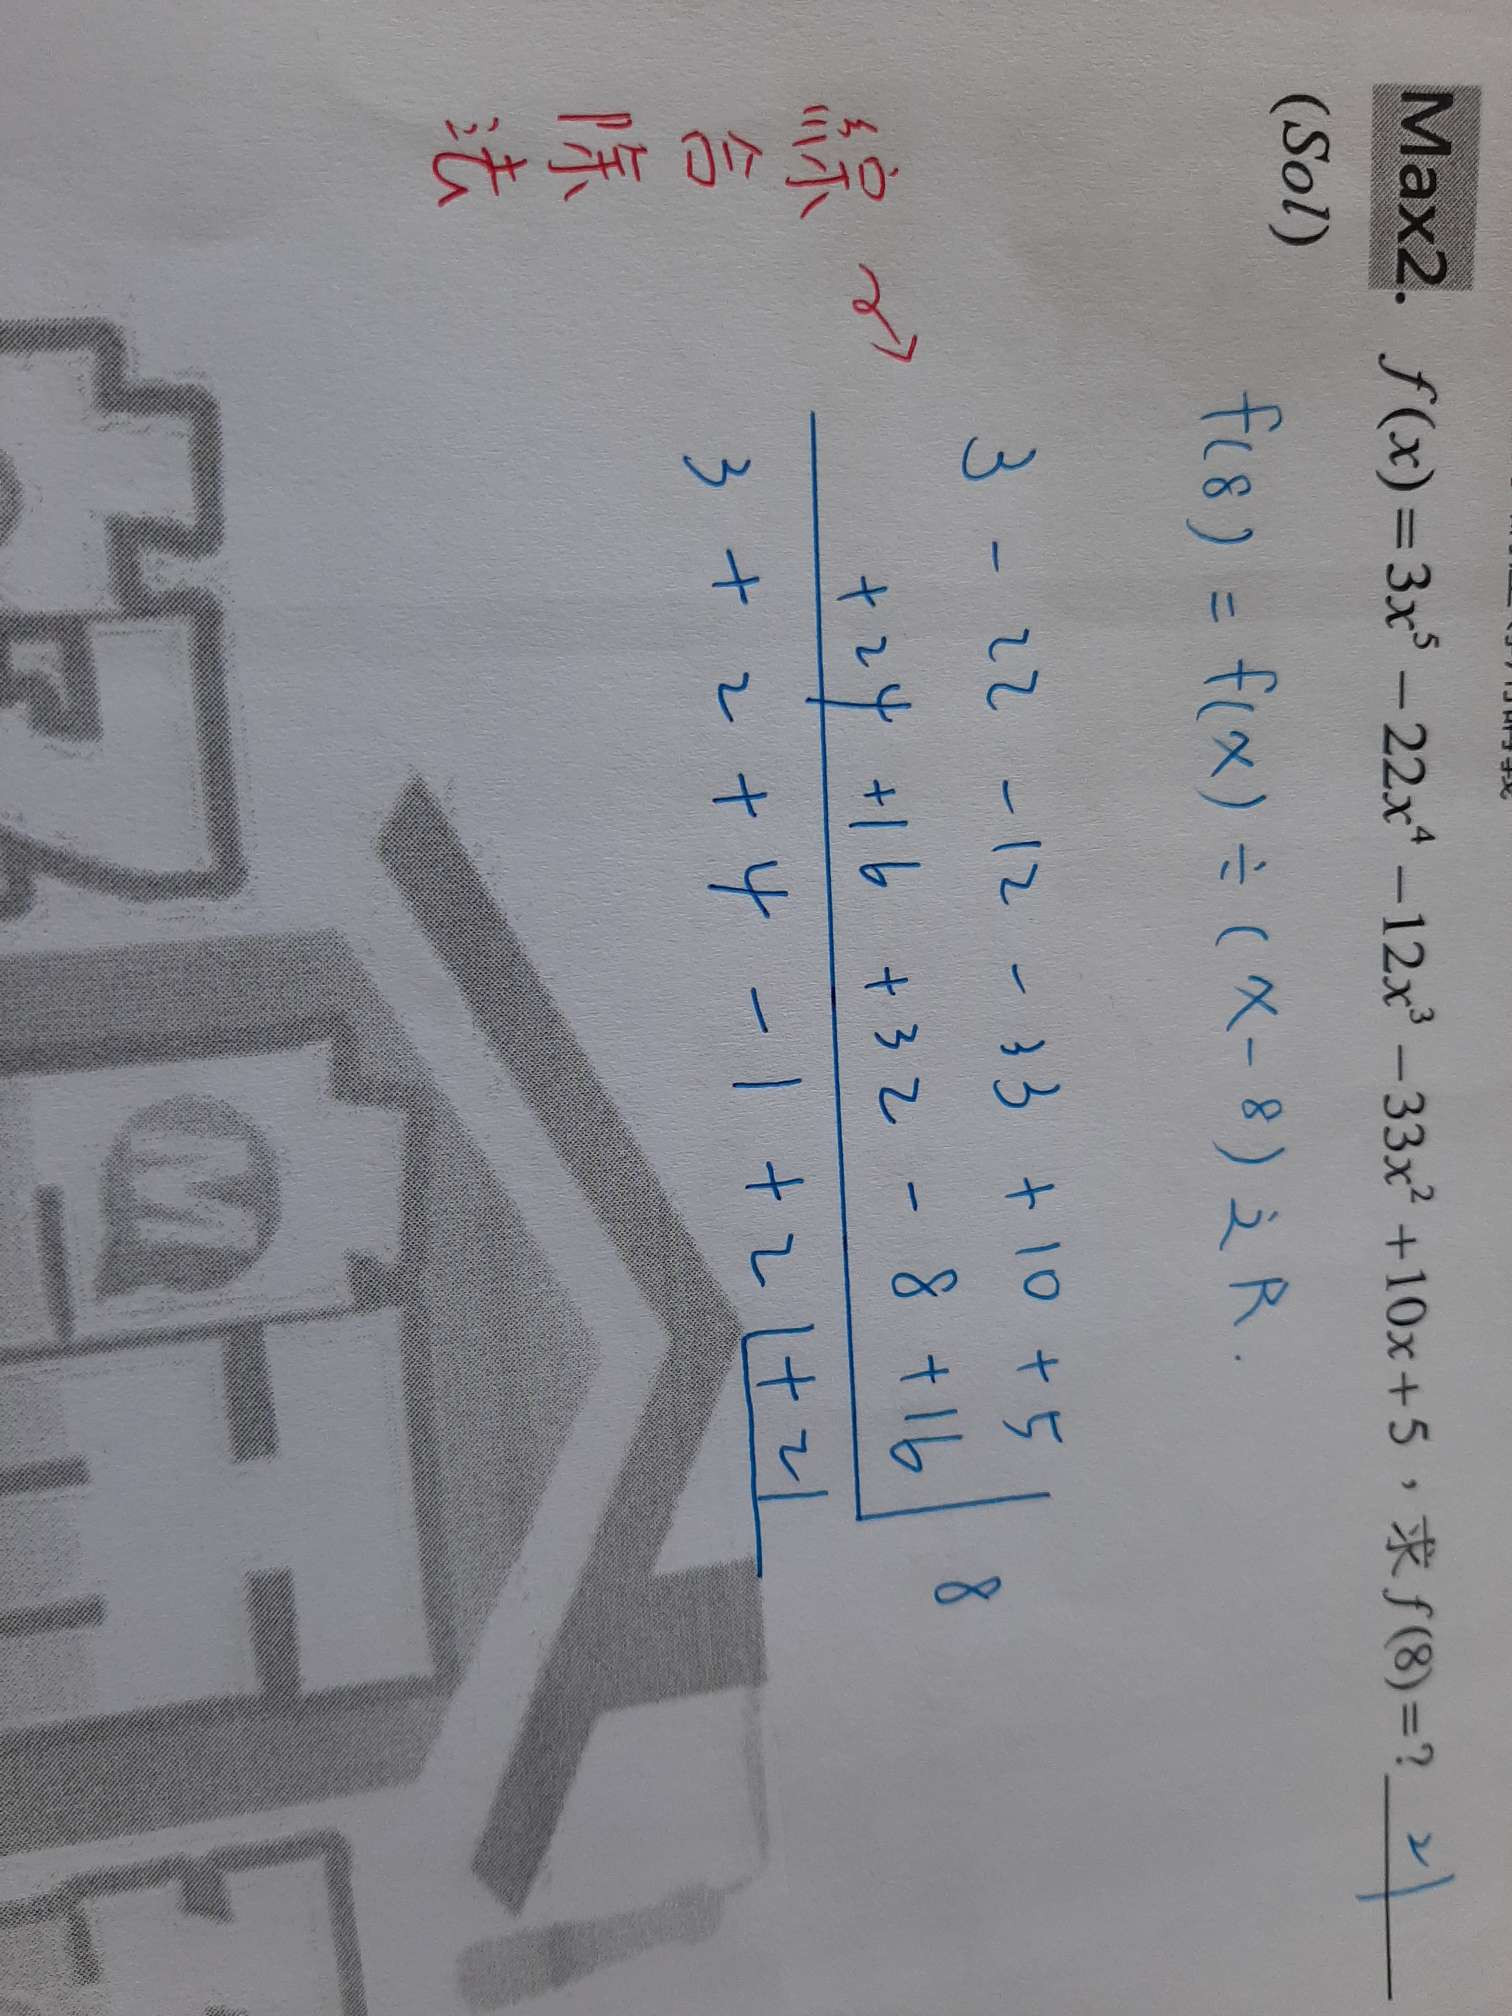 Max2. f(x)=3x⁵−22x⁴−12x³−33x²+10x+5，求f(8)=? 21
(Sol)
f(8) = f(x) ÷ (x-8) 之 R.
綜合除法
3 - 22 - 12 - 33 + 10 + 5 | 8
+ 24 + 16 + 32 - 8 + 16
3 + 2 + 4 - 1 + 2 | + 21